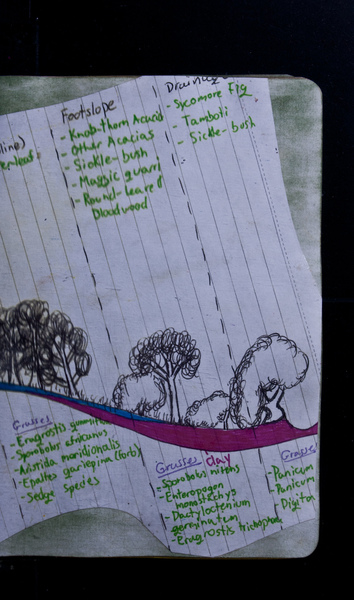 line)
er-leaf
Footslope
- Knob-thorn Acacia
- Other Acacias
- Sickle-bush
- Magic guarri
- Round-leaved
bloodwood
Drainage
- Sycamore Fig
- Tamboti
- Sickle-bush
Grasses
- Eragrostis gummiflua
- Sporobolus africanus
- Aristida meridionalis
- Epaltes gariepina (forb)
- Sedge species
clay
Grasses
- Sporobolus nitens
- Enteropogon
monostachys
- Dactyloctenium
geminatum
- Eragrostis trichophora
Grasses
- Panicum
- Panicum
- Digitar